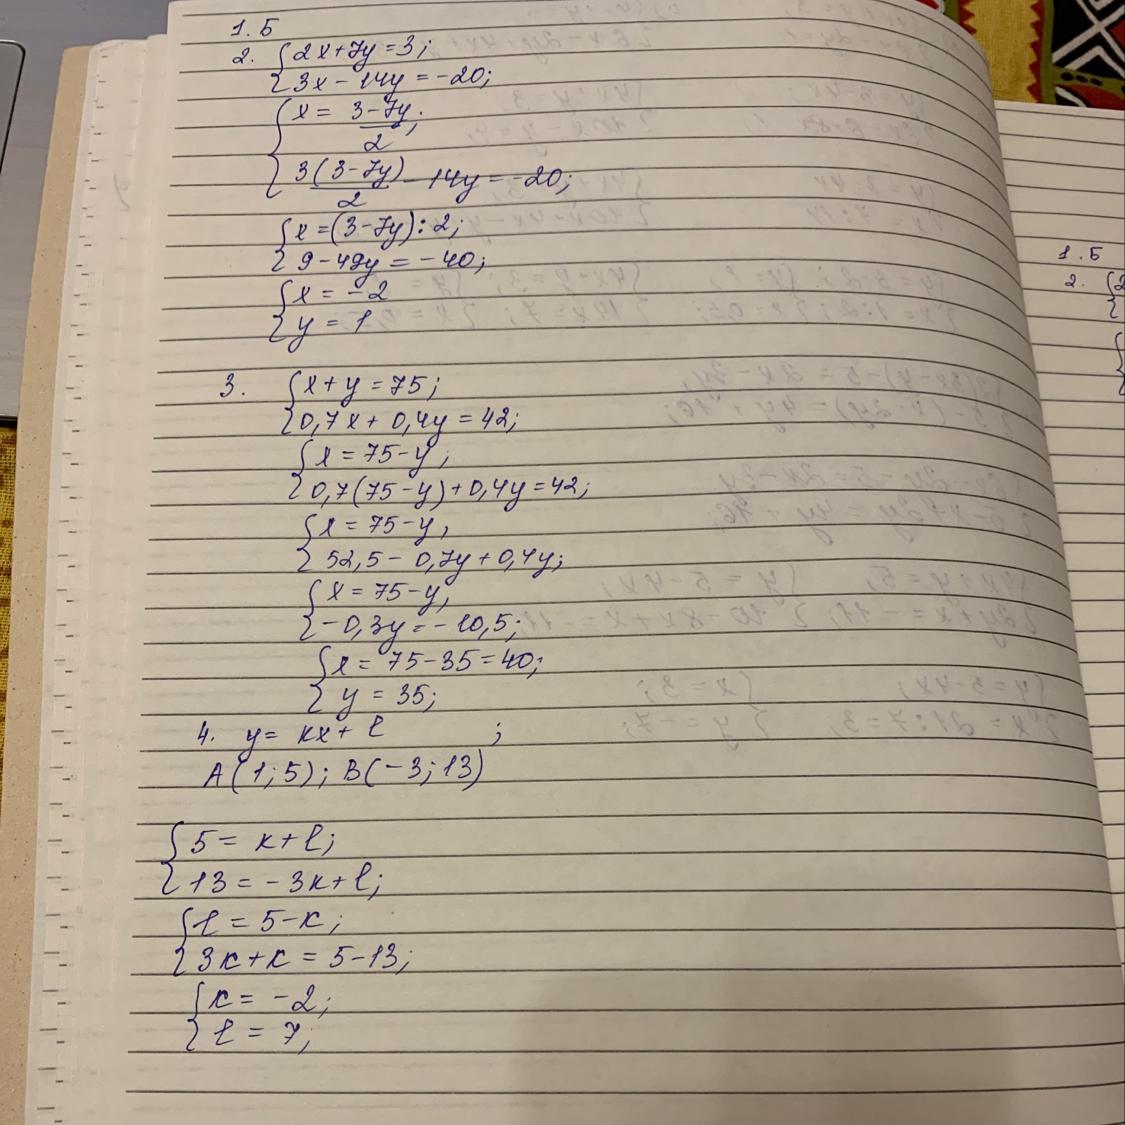 1. Б
2. { 2x+7y=3;
{ 3x-14y=-20;
{ x = (3-7y)/2;
{ 3(3-7y)/2 - 14y = -20;
{ x = (3-7y):2;
{ 9-49y = -40;
{ x = -2
{ y = 1
3. { x+y = 75;
{ 0,7x + 0,4y = 42;
{ x = 75-y;
{ 0,7(75-y)+0,4y=42;
{ x = 75-y;
{ 52,5 - 0,7y + 0,4y;
{ x = 75-y;
{ -0,3y = -10,5;
{ x = 75-35=40;
{ y = 35;
4. y = kx + l ;
A(1;5); B(-3;13)
{ 5 = k+l;
{ 13 = -3k+l;
{ l = 5-k;
{ 3k+k = 5-13;
{ k = -2;
{ l = 7;
1. Б
2. { 2
{